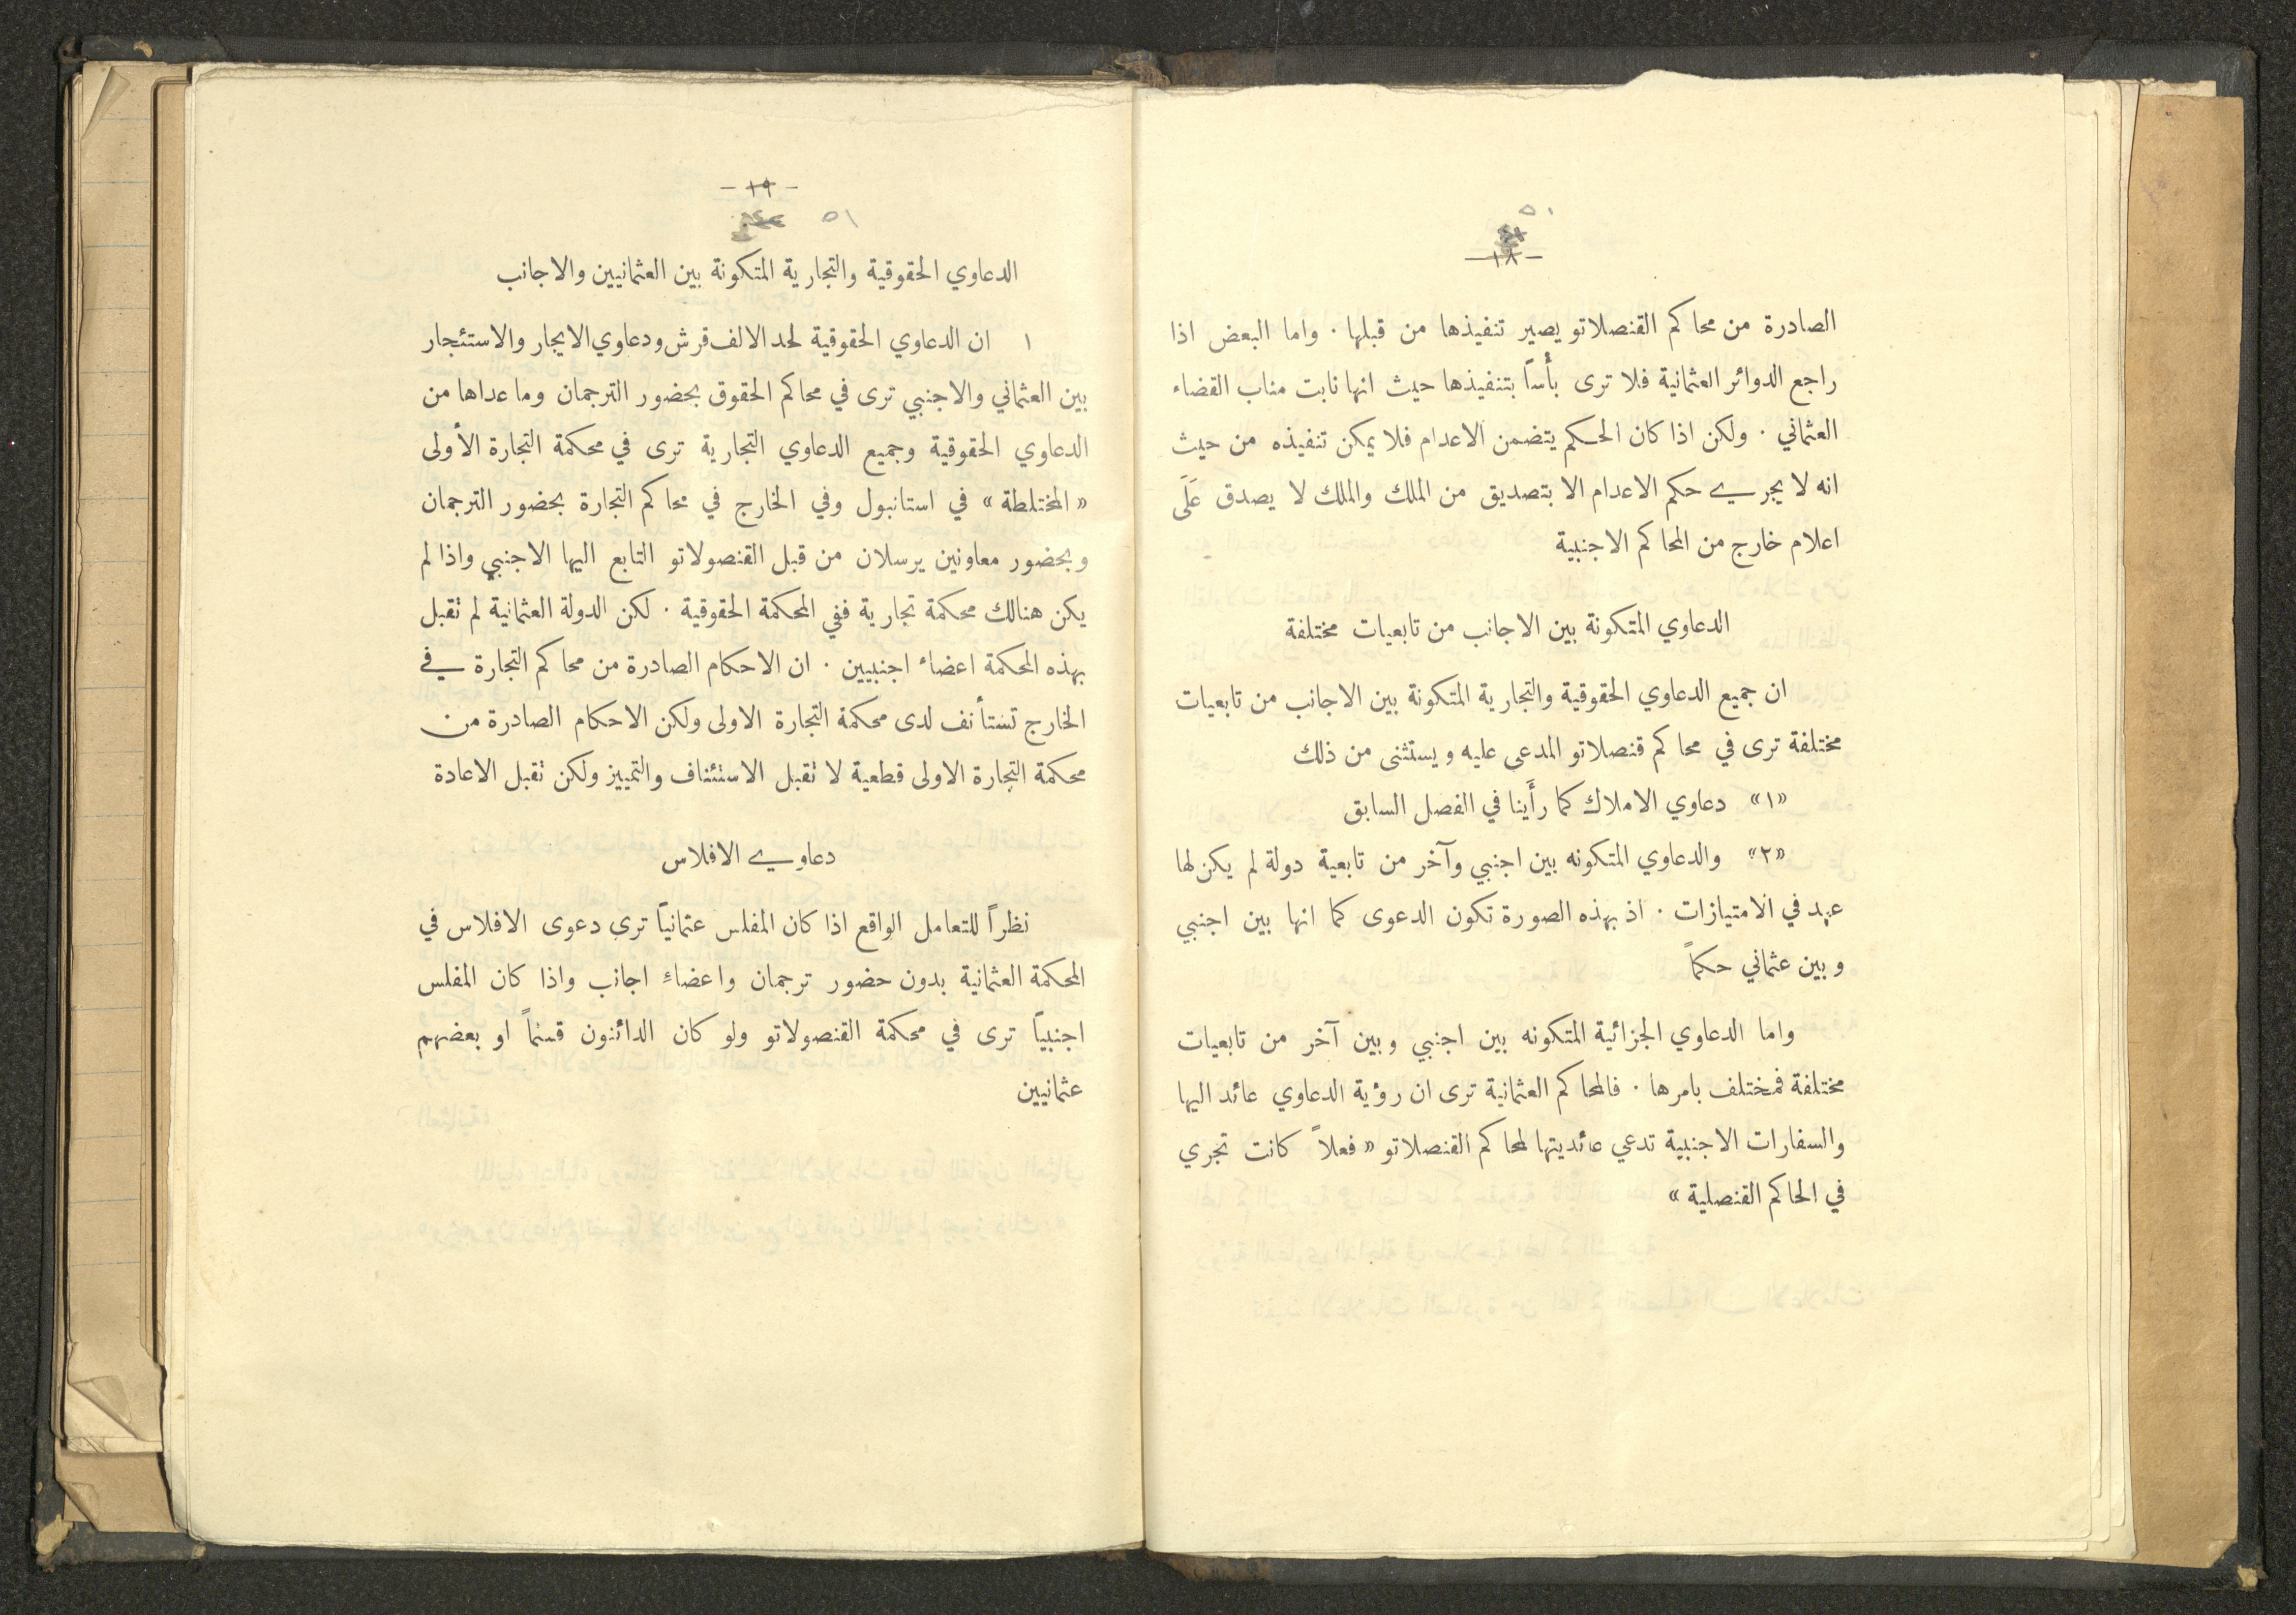 ٥٠
— ١٨ —
الصادرة من محاكم القنصلاتو يصير تنفيذها من قبلها . واما البعض اذا
راجع الدوائر العثمانية فلا ترى بأساً بتنفيذها حيث انها نابت مناب القضاء
العثماني . ولكن اذا كان الحكم يتضمن الاعدام فلا يمكن تنفيذه من حيث
انه لا يجري حكم الاعدام الا بتصديق من الملك والملك لا يصدق عَلَى
اعلام خارج من المحاكم الاجنبية
الدعاوي المتكونة بين الاجانب من تابعيات مختلفة
ان جميع الدعاوي الحقوقية والتجارية المتكونة بين الاجانب من تابعيات
مختلفة ترى في محاكم قنصلاتو المدعى عليه ويستثنى من ذلك
«١» دعاوي الاملاك كما رأَينا في الفصل السابق
«٢» والدعاوي المتكونه بين اجنبي وآخر من تابعية دولة لم يكن لها
عهد في الامتيازات . اذ بهذه الصورة تكون الدعوى كما انها بين اجنبي
وبين عثماني حكماً
واما الدعاوي الجزائية المتكونه بين اجنبي وبين آخر من تابعيات
مختلفة فمختلف بامرها . فالمحاكم العثمانية ترى ان رؤية الدعاوي عائد اليها
والسفارات الاجنبية تدعي عائديتها لمحاكم القنصلاتو « فعلاً كانت تجري
في الحاكم القنصلية »
— ١٩ —
٥١
الدعاوي الحقوقية والتجارية المتكونة بين العثمانيين والاجانب
١ ان الدعاوي الحقوقية لحد الالف قرش ودعاوي الايجار والاستئجار
بين العثماني والاجنبي ترى في محاكم الحقوق بحضور الترجمان وما عداها من
الدعاوي الحقوقية وجميع الدعاوي التجارية ترى في محكمة التجارة الأولى
« المختلطة » في استانبول وفي الخارج في محاكم التجارة بحضور الترجمان
وبحضور معاونين يرسلان من قبل القنصولاتو التابع اليها الاجنبي واذا لم
يكن هنالك محكمة تجارية ففي المحكمة الحقوقية . لكن الدولة العثمانية لم تقبل
بهذه المحكمة اعضاء اجنبيين . ان الاحكام الصادرة من محاكم التجارة في
الخارج تستأنف لدى محكمة التجارة الاولى ولكن الاحكام الصادرة من
محكمة التجارة الاولى قطعية لا تقبل الاستئناف والتمييز ولكن تقبل الاعادة
دعاوي الافلاس
نظراً للتعامل الواقع اذا كان المفلس عثمانيّاً ترى دعوى الافلاس في
المحكمة العثمانية بدون حضور ترجمان واعضاءِ اجانب واذا كان المفلس
اجنبيّاً ترى في محكمة القنصولاتو ولو كان الدائنون قسماً او بعضهم
عثمانيين